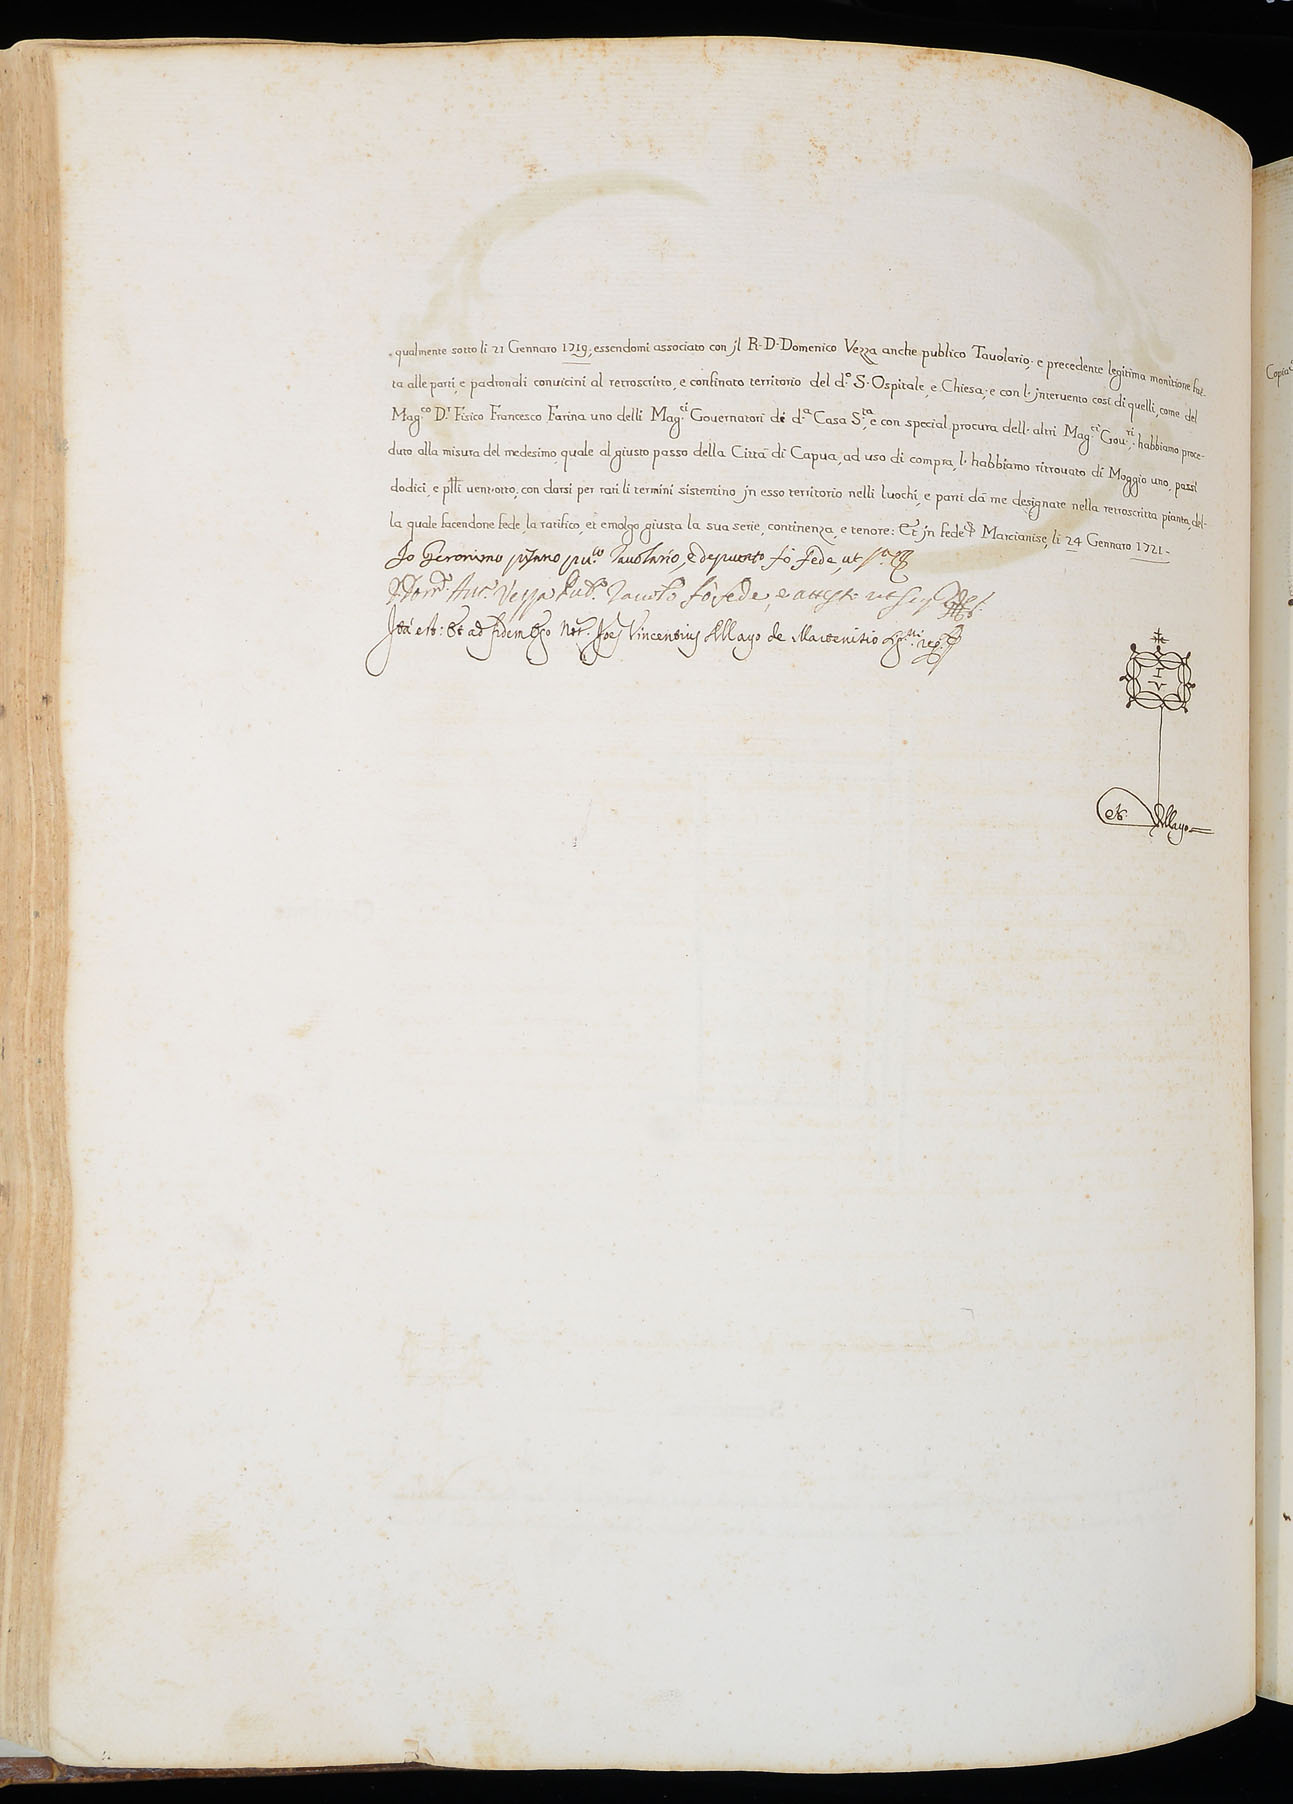 qualmente sotto li 21 Gennaro 1719, essendomi associato con jl R. D. Domenico Vezza anche publico Tauolario, e precedente legitima monitione fat-
ta alle parti, e padronali conuicini al retroscritto, e confinato territorio del d.º S. Ospitale, e Chiesa, e con l. jnteruento così di quelli, come del
Mag.co D.r Fisico Francesco Farina uno delli Mag.ci Gouernatori dè d.a Casa S.ta, e con special procura dell. altri Mag.ci Gou.ri, habbiamo proce-
duto alla misura del medesimo, quale al giusto passo della Città di Capua, ad uso di compra, l. habbiamo ritrouato di Moggio uno, passi
dodici, e plli uent'otto, con darsi per rati li termini sistentino jn esso territorio nelli luochi, e parti dà me designate nella retroscritta pianta, del-
la quale facendone fede, la ratifico, et emolgo giusta la sua serie, continenza, e tenore: Et jn fede &c. Marcianise, li 24 Gennaro 1721.
Io Geronimo pu.co Tauolario, e deputato fò fede, ut s.a
Vezza Pub.co Tauol.º fò fede, e attesto ut
Ità est: Et ad fidem Ego Not. Joes Vincentius Mayo de Martenisio
I
V
N. Mayo
Copia